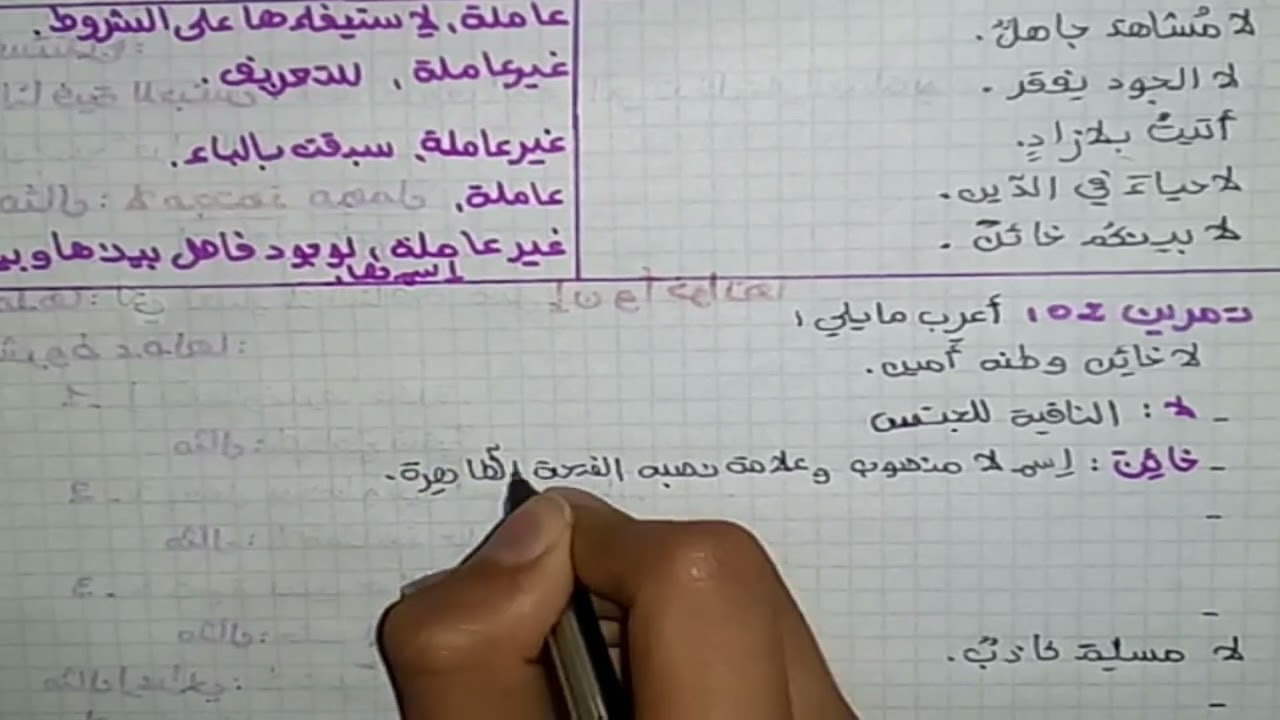 لا مُشاهد جاهلٌ.
عاملة، لاستيفاءها على الشروط.
لا الجود يفقر.
غير عاملة، للتعريف.
أتيتُ بلا زادٍ.
غير عاملة، سبقت بالباء.
لا حياءَ في الدّين.
عاملة،
لا بينكم خائنٌ.
غير عاملة، لوجود فاصل بينها وبين
إسمها.
تمرين 02، أعرب ما يلي،
لا خائِن وطنه أمين.
- لا : النافية للجنس
- خائن : إسم لا منصوب وعلامة نصبه الفتحة الظاهرة.
-
-
لا كاذبٌ.
-